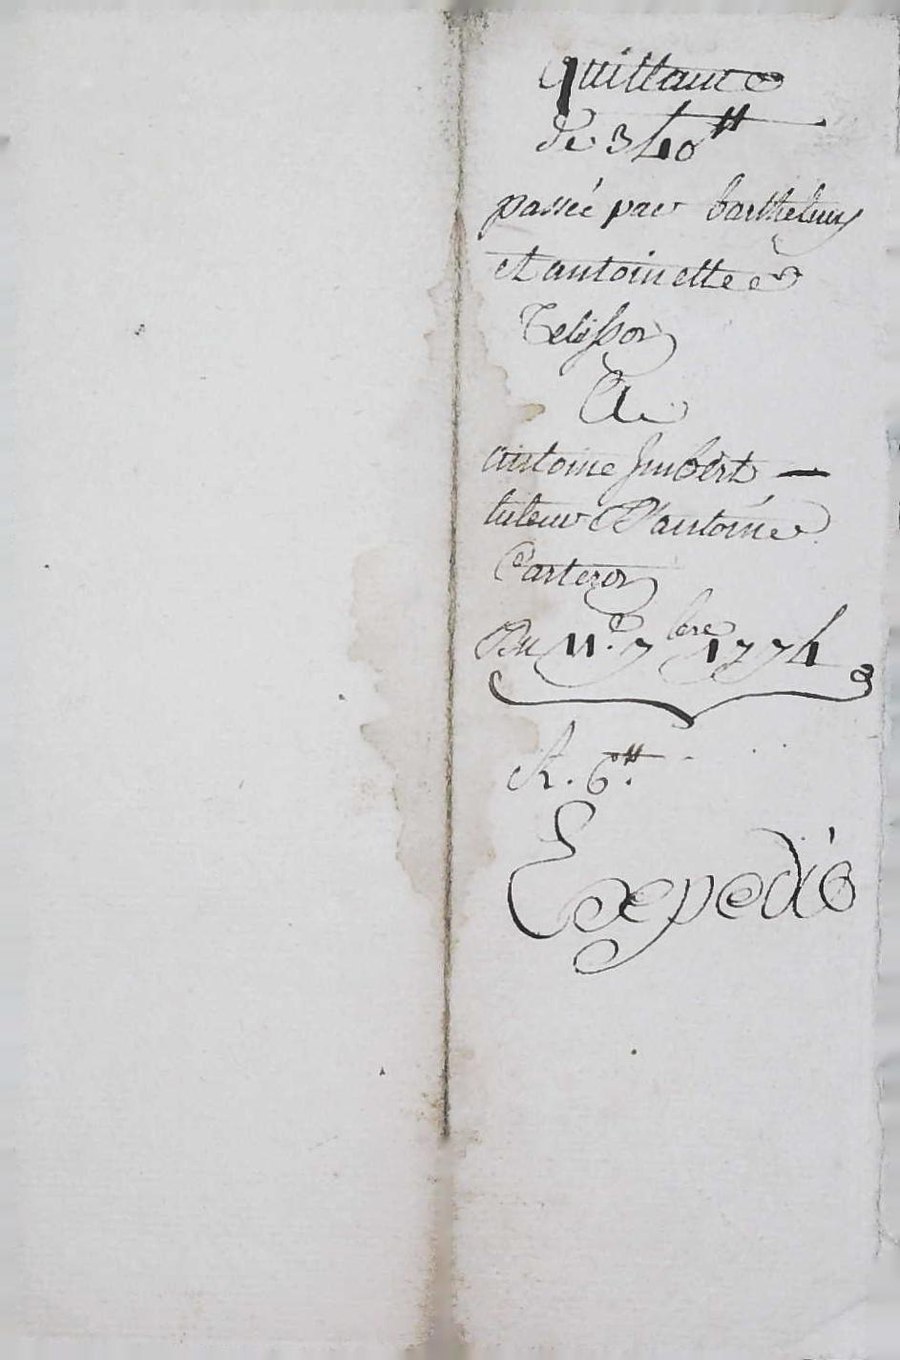 quittance
de 340ᵗᵗ
passée par barthelemy
et antoinette
Telissor
A
antoine Imbert —
tuteur D'antoine
Carteron
Du 11.e 7bre 1774
6ᵗᵗ
Expedié